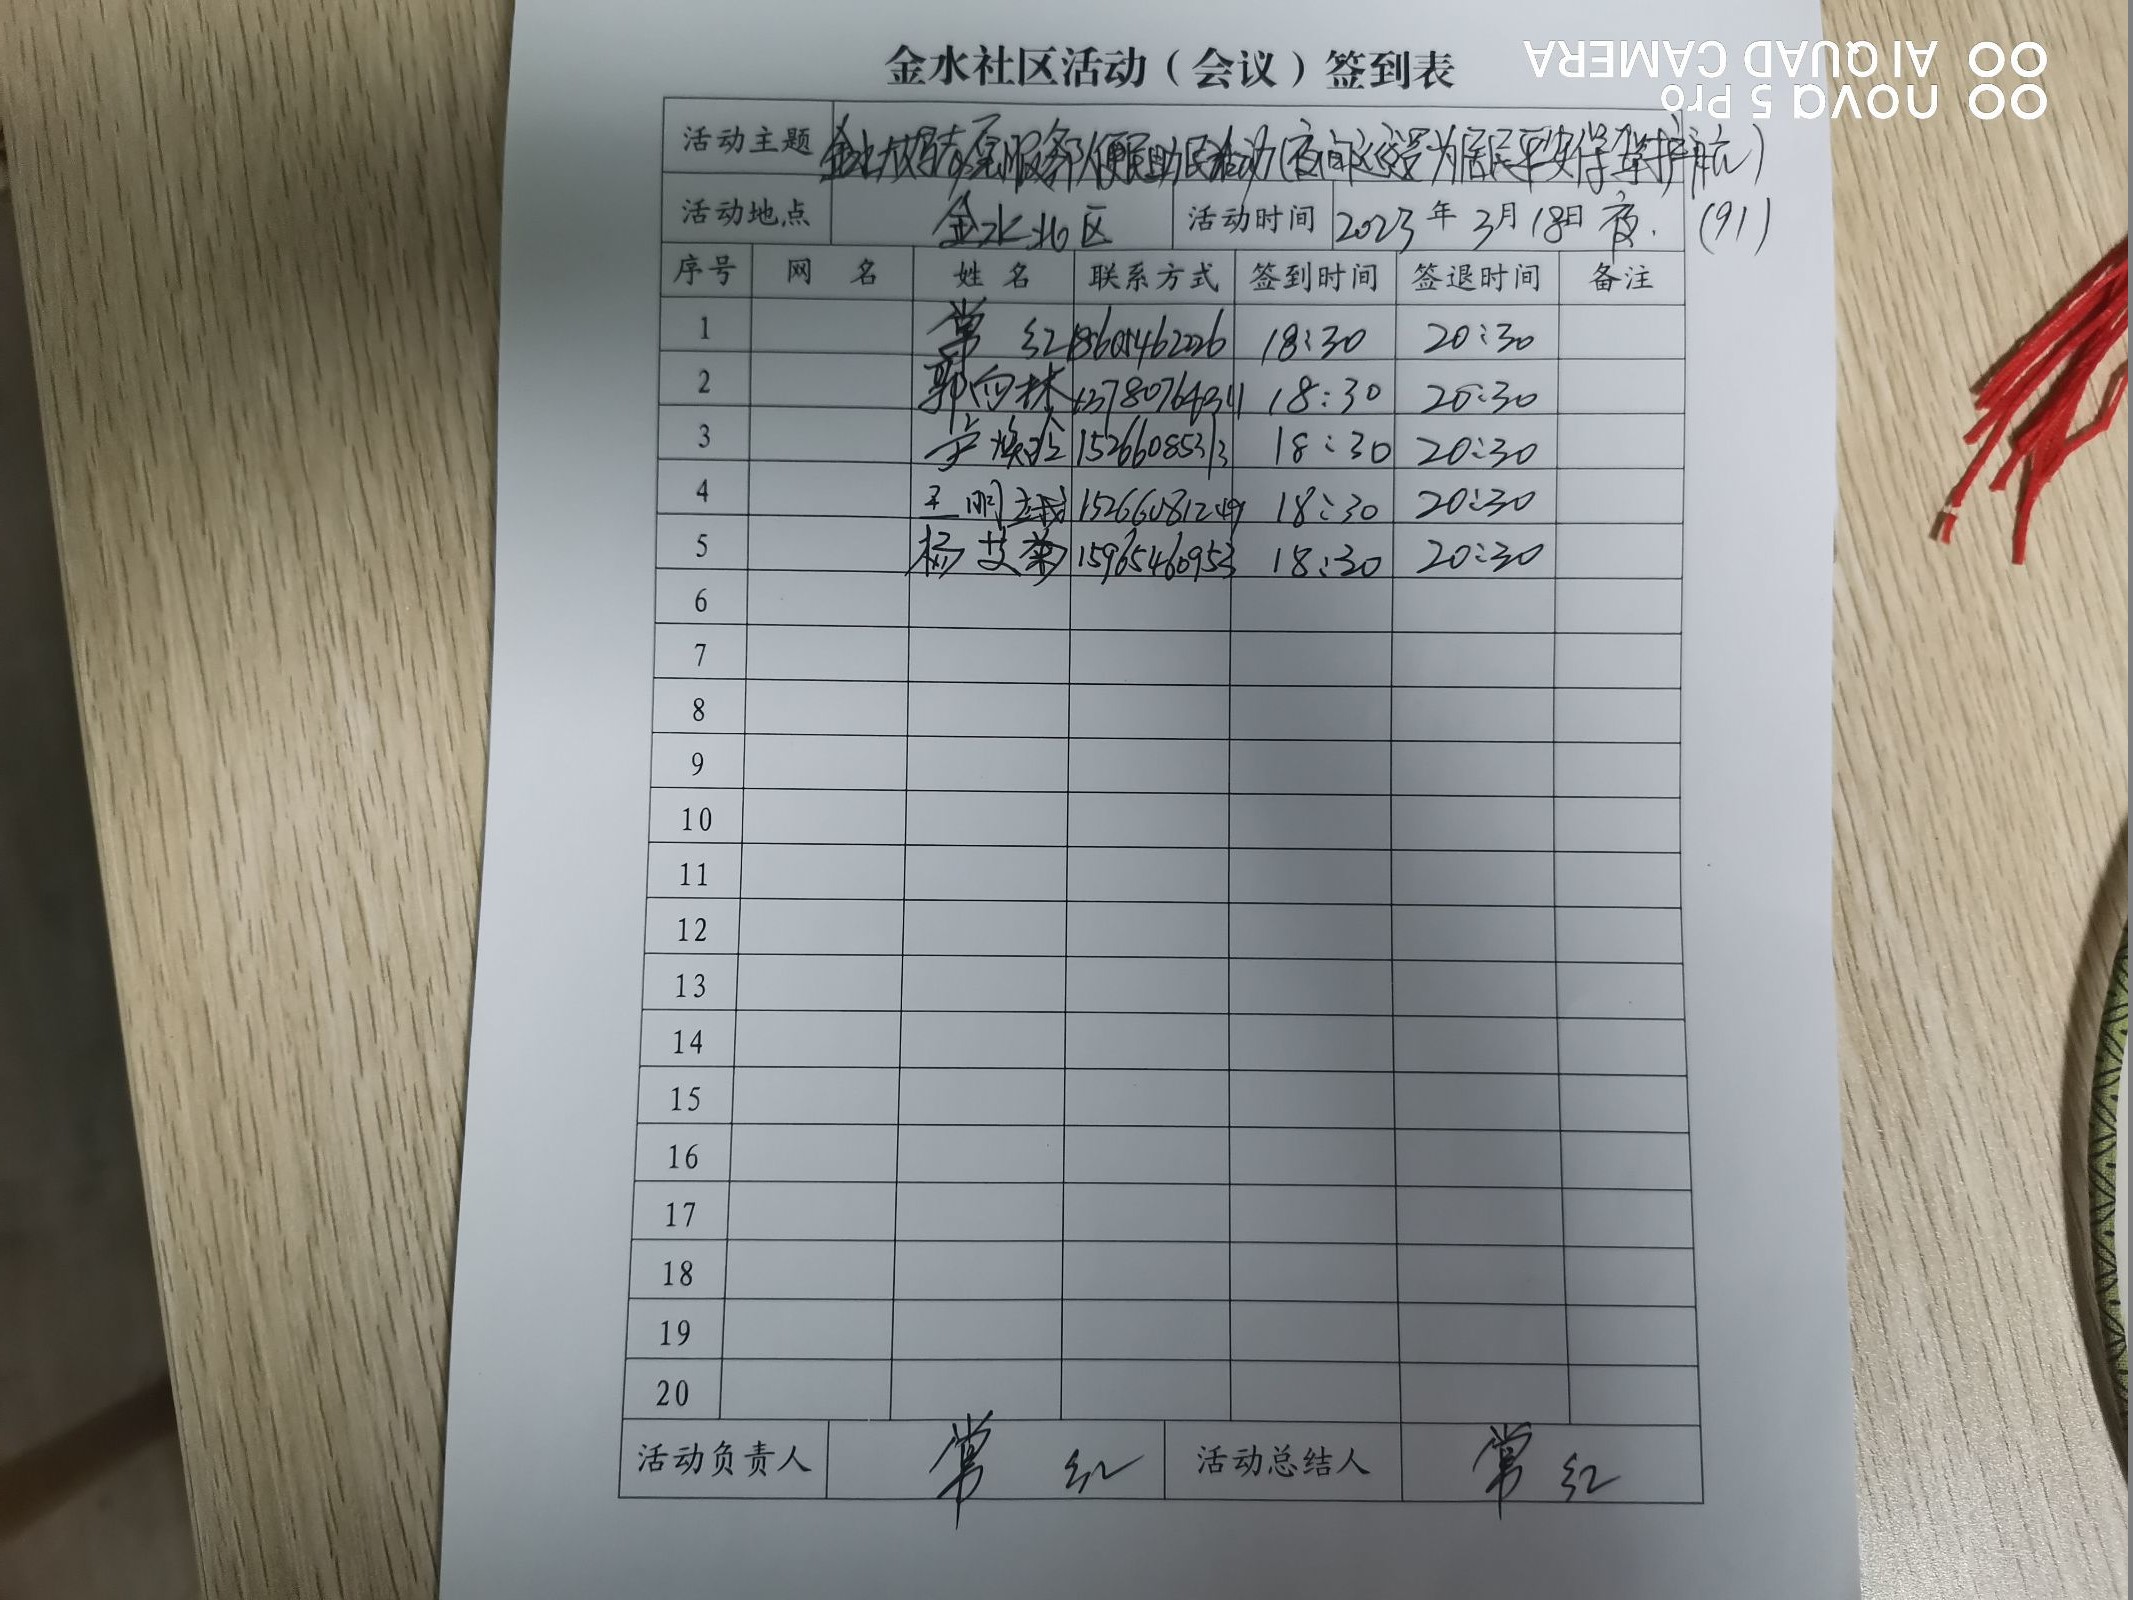 金水社区活动（会议）签到表
活动主题 志愿服务队便民助民活动(夜间巡逻为居民平安保驾护航)
活动地点 金水北区 活动时间 2023年3月18日夜. (91)
序号 网名 姓名 联系方式 签到时间 签退时间 备注
1 常红 18:30 20:30
2 郭向林 18:30 20:30
3 15266085313 18:30 20:30
4 18:30 20:30
5 杨艾菊 15965460953 18:30 20:30
6
7
8
9
10
11
12
13
14
15
16
17
18
19
20
活动负责人 常红 活动总结人 常红
nova 5 Pro
AI QUAD CAMERA